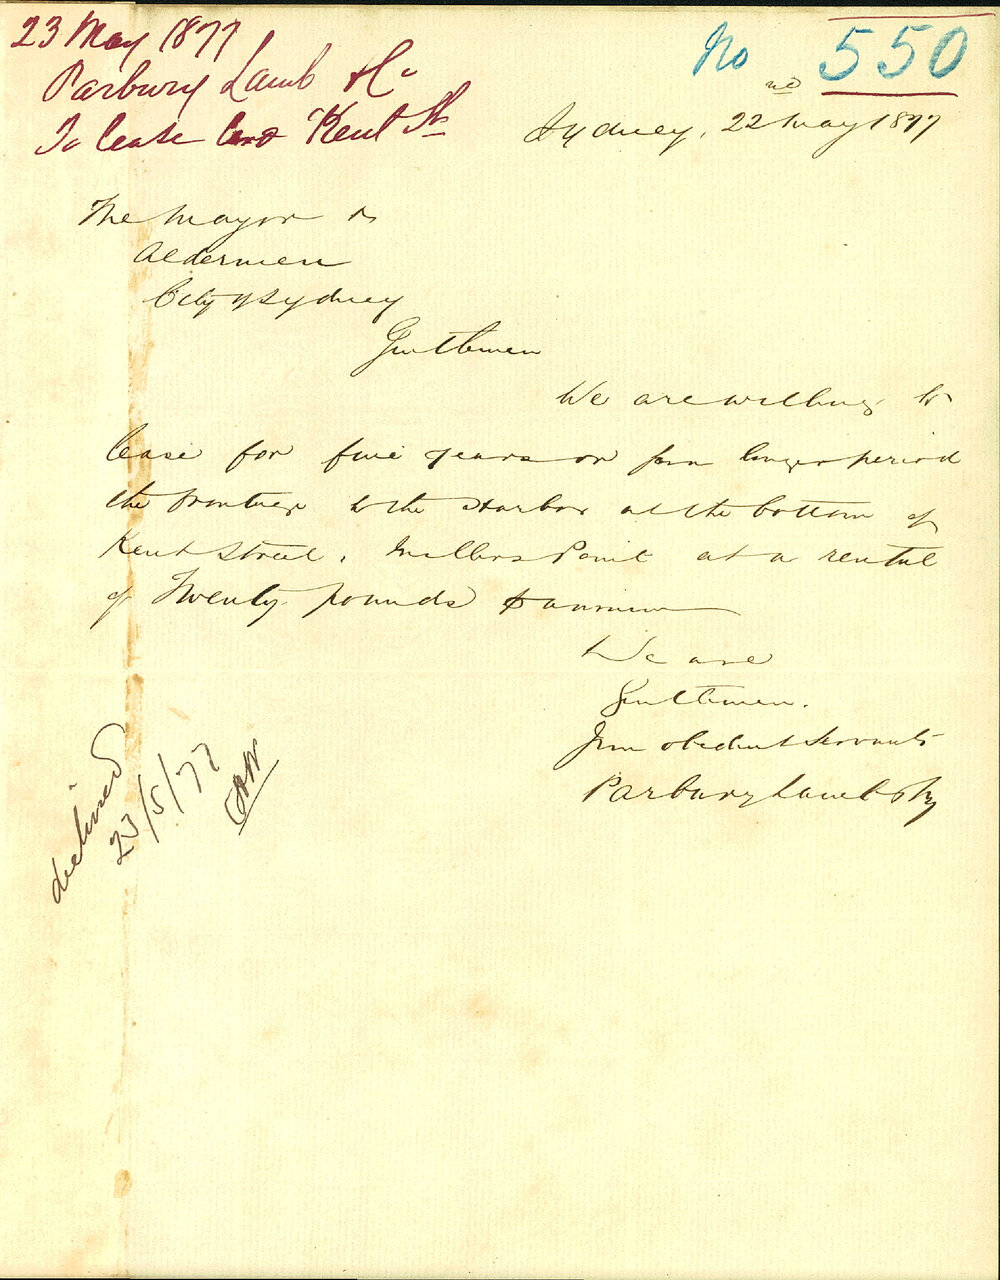 23 May 1877
Parbury Lamb & Co
To lease land Kent St
No 550
Sydney, 22nd May 1877
The Mayor &
Aldermen
City of Sydney
Gentlemen
We are willing to
lease for five years or for longer period
the frontage to the Harbor at the bottom of
Kent Street, Millers Point at a rental
of Twenty pounds per annum
We are
Gentlemen.
Your obedient servants
Parbury Lamb & Co
declined
23/5/77